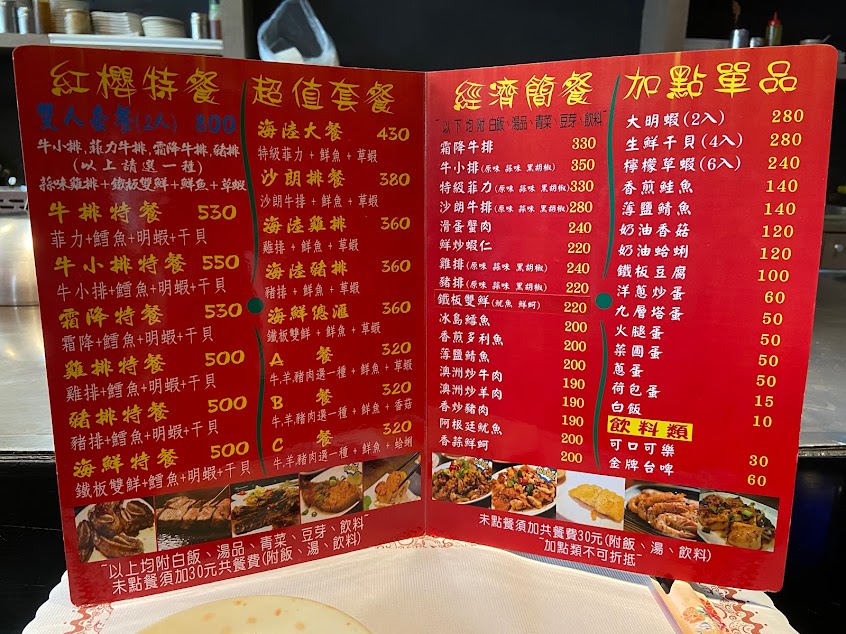 紅櫻特餐
雙人套餐(2人) 800
牛小排,菲力牛排,霜降牛排,豬排
(以上請選一種)
蒜味雞排+鐵板雙鮮+鮮魚+草蝦
牛排特餐 530
菲力+鱈魚+明蝦+干貝
牛小排特餐 550
牛小排+鱈魚+明蝦+干貝
霜降特餐 530
霜降+鱈魚+明蝦+干貝
雞排特餐 500
雞排+鱈魚+明蝦+干貝
豬排特餐 500
豬排+鱈魚+明蝦+干貝
海鮮特餐 500
鐵板雙鮮+鱈魚+明蝦+干貝
超值套餐
海陸大餐 430
特級菲力+鮮魚+草蝦
沙朗排餐 380
沙朗牛排+鮮魚+草蝦
海陸雞排 360
雞排+鮮魚+草蝦
海陸豬排 360
豬排+鮮魚+草蝦
海鮮總滙 360
鐵板雙鮮+鮮魚+草蝦
A 餐 320
牛.羊.豬肉選一種+鮮魚+草蝦
B 餐 320
牛.羊.豬肉選一種+鮮魚+香菇
C 餐 320
牛.羊.豬肉選一種+鮮魚+蛤蜊
"以上均附白飯、湯品、青菜、豆芽、飲料"
未點餐須加30元共餐費(附飯、湯、飲料)
經濟簡餐
"以下均附白飯、湯品、青菜、豆芽、飲料"
霜降牛排 330
牛小排(原味 蒜味 黑胡椒) 350
特級菲力(原味 蒜味 黑胡椒) 330
沙朗牛排(原味 蒜味 黑胡椒) 280
滑蛋蟹肉 240
鮮炒蝦仁 220
雞排(原味 蒜味 黑胡椒) 240
豬排(原味 蒜味 黑胡椒) 220
鐵板雙鮮(魷魚 鮮蚵) 220
冰島鱈魚 200
香煎多利魚 200
薄鹽鯖魚 200
澳洲炒牛肉 190
澳洲炒羊肉 190
香炒豬肉 190
阿根廷魷魚 200
香蒜鮮蚵 200
加點單品
大明蝦(2入) 280
生鮮干貝(4入) 280
檸檬草蝦(6入) 240
香煎鮭魚 140
薄鹽鯖魚 140
奶油香菇 120
奶油蛤蜊 120
鐵板豆腐 100
洋蔥炒蛋 60
九層塔蛋 50
火腿蛋 50
菜圃蛋 50
蔥蛋 50
荷包蛋 15
白飯 10
飲料類
可口可樂 30
金牌台啤 60
未點餐須加共餐費30元(附飯、湯、飲料)
"加點類不可折抵"